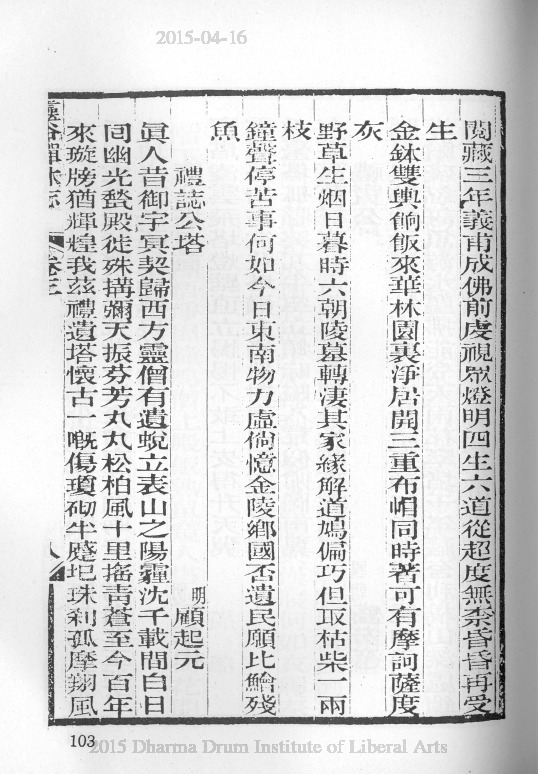 2015-04-16
閱藏三年義甫成佛前虔視眾燈明四生六道從超度無柰昏昏再受
生
金鉢雙輿餉飯來華林園裏淨居開三重布帽同時著可有摩訶薩度
灰
野草生烟日暮時六朝陵墓轉淒其家緣解道鳩偏巧但取枯柴一兩
枝
鐘聲停苦事何如今日東南物力虛倘憶金陵鄉國否遺民願比鱠殘
魚
禮誌公塔
明顧起元
眞人昔御宇冥契歸西方靈僧有遺蛻立表山之陽霾沈千載間白日
同幽光甃殿徙殊搆彌天振芬芳丸丸松柏風十里搖靑蒼至今百年
來璇牓猶輝煌我茲禮遺塔懷古一嘅傷瓊砌半蹙圮珠刹孤摩翔風
靈谷禪林志
卷三
八
103
2015 Dharma Drum Institute of Liberal Arts